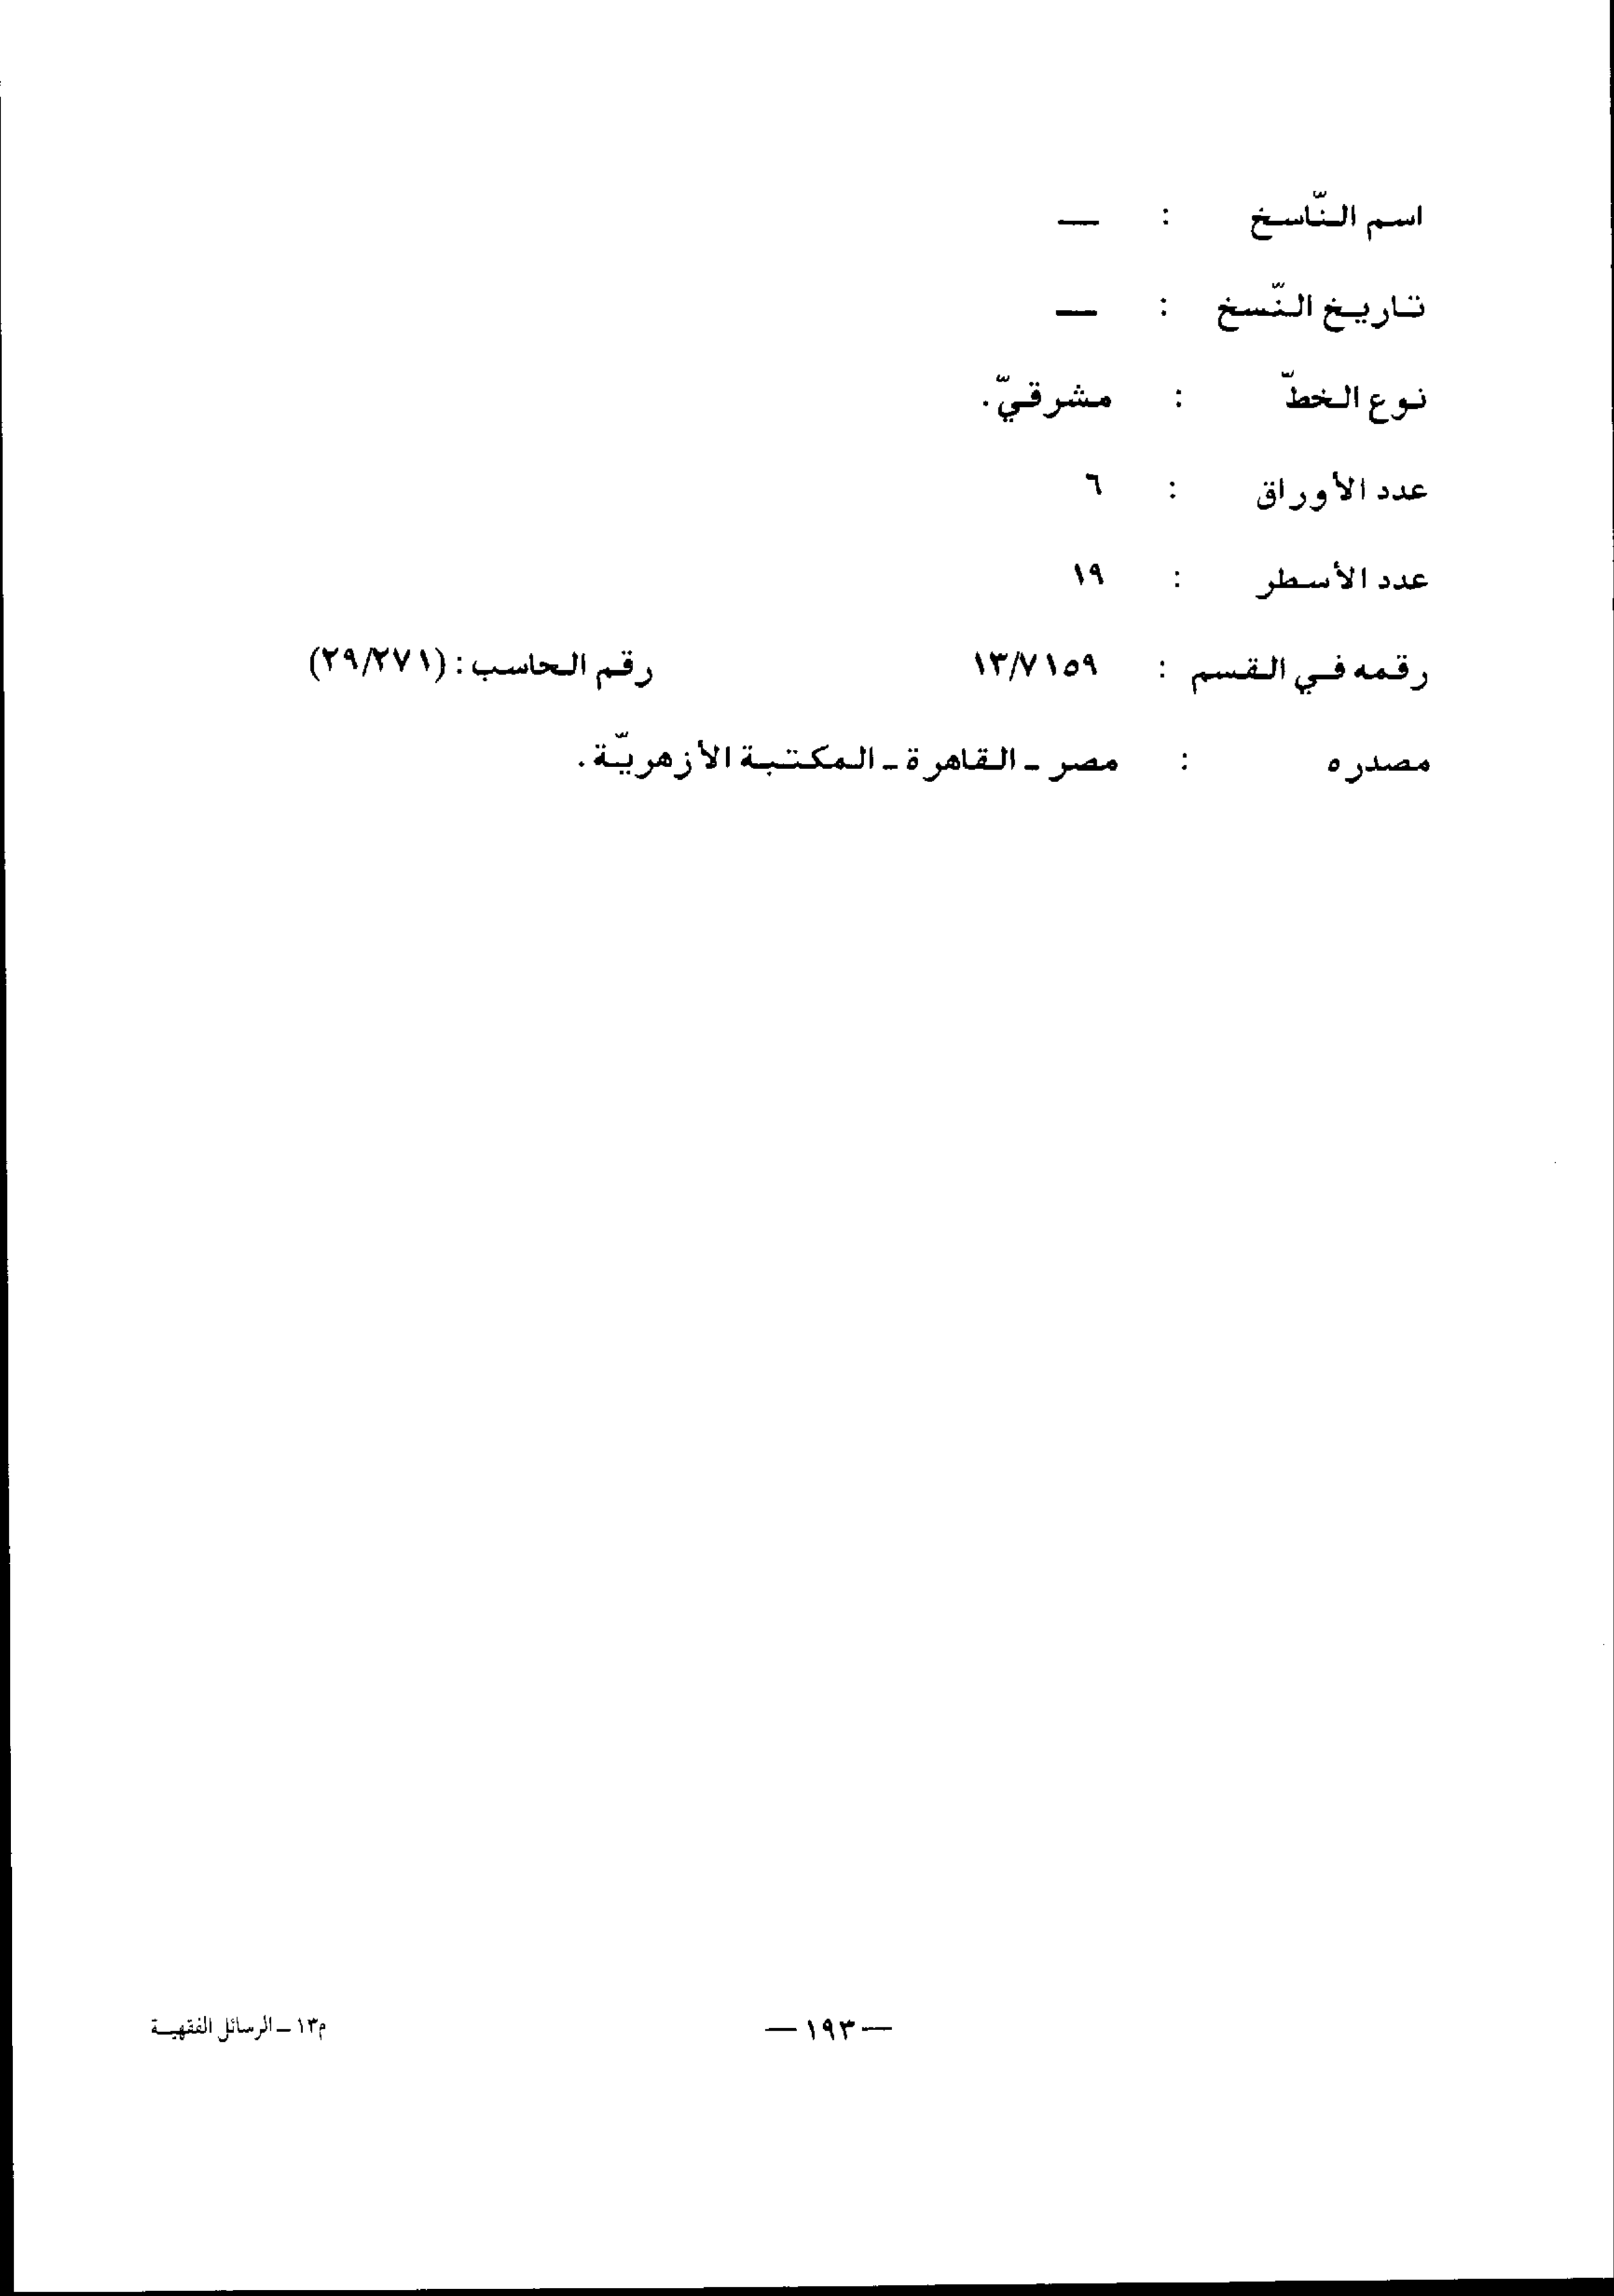 اسم النّاسخ : —
تاريخ النّسخ : —
نوع الخطّ : مشرقيّ.
عدد الأوراق : ٦
عدد الأسطر : ١٩
رقمه في القسم : ١٣/٧١٥٩ رقم الحاسب : (٢٩/٢٧١)
مصدره : مصر - القاهرة - المكتبة الأزهريّة .
— ١٩٣ —
م١٣ - الرسائل الفقهية